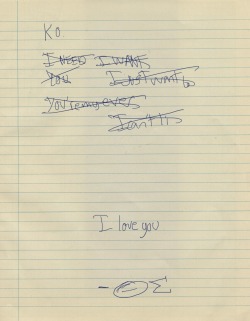 KO.
I NEED I WANT
You I Just want to
You're my ever
I can't li
I love you
- Θ Σ